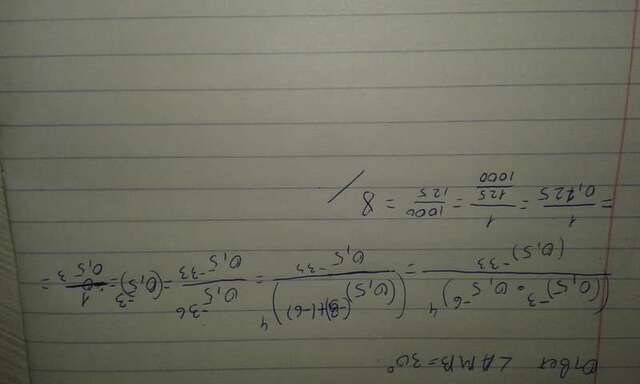 Ответ ∠AMB=30°.
((0,5)^-3 · 0,5^-6)^4 / (0,5)^-33 = ((0,5)^(-3)+(-6))^4 / 0,5^-33 = 0,5^-36 / 0,5^-33 = (0,5)^-3 = 1 / 0,5^3 =
= 1 / 0,125 = 1 / (125/1000) = 1000/125 = 8